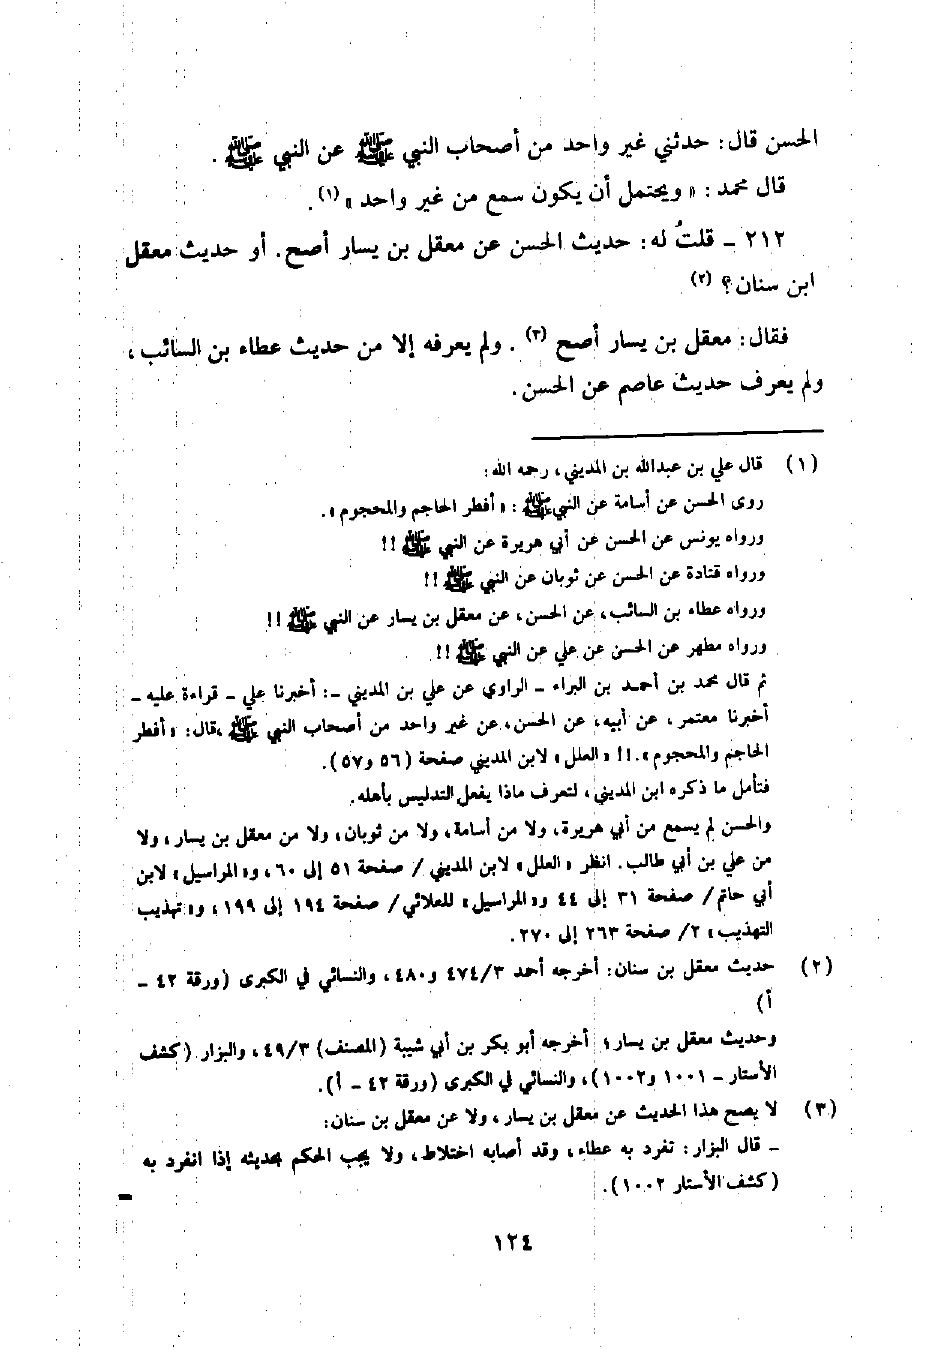 الحسن قال: حدثني غير واحد من أصحاب النبي ﷺ عن النبي ﷺ .
قال محمد : « ويحتمل أن يكون سمع من غير واحد » (١) .
٢١٢ ـ قلتُ له: حديث الحسن عن معقل بن يسار أصح. أو حديث معقل
ابن سنان؟ (٢)
فقال: معقل بن يسار أصح (٣) . ولم يعرفه إلا من حديث عطاء بن السائب،
ولم يعرف حديث عاصم عن الحسن.
(١) قال علي بن عبدالله بن المديني، رحمه الله:
روى الحسن عن أسامة عن النبي ﷺ : « أفطر الحاجم والمحجوم ».
ورواه يونس عن الحسن عن أبي هريرة عن النبي ﷺ !!
ورواه قتادة عن الحسن عن ثوبان عن النبي ﷺ !!
ورواه عطاء بن السائب، عن الحسن، عن معقل بن يسار عن النبي ﷺ !!
ورواه مطهر عن الحسن عن علي عن النبي ﷺ !!
ثم قال محمد بن أحمد بن البراء ـ الراوي عن علي بن المديني ـ: أخبرنا علي ـ قراءة عليه ـ
أخبرنا معتمر، عن أبيه، عن الحسن، عن غير واحد من أصحاب النبي ﷺ ،قال: « أفطر
الحاجم والمحجوم ».!! « العلل » لابن المديني صفحة (٥٦ و٥٧).
فتأمل ما ذكره ابن المديني، لتعرف ماذا يفعل التدليس بأهله.
والحسن لم يسمع من أبي هريرة، ولا من أسامة، ولا من ثوبان، ولا من معقل بن يسار، ولا
من علي بن أبي طالب. انظر « العلل » لابن المديني / صفحة ٥١ إلى ٦٠، و« المراسيل » لابن
أبي حاتم/ صفحة ٣١ إلى ٤٤ و« المراسيل » للعلائي/ صفحة ١٩٤ إلى ١٩٩، و« تهذيب
التهذيب » ٢/ صفحة ٢٦٣ إلى ٢٧٠.
(٢) حديث معقل بن سنان: أخرجه أحمد ٤٧٤/٣ و٤٨٠، والنسائي في الكبرى (ورقة ٤٢ ـ
أ)
وحديث معقل بن يسار؛ أخرجه أبو بكر بن أبي شيبة (المصنف) ٤٩/٣، والبزار (كشف
الأستار ـ ١٠٠١ و١٠٠٢)، والنسائي في الكبرى (ورقة ٤٢ ـ أ).
(٣) لا يصح هذا الحديث عن معقل بن يسار، ولا عن معقل بن سنان:
ـ قال البزار: تفرد به عطاء، وقد أصابه اختلاط، ولا يجب الحكم بحديثه إذا انفرد به
(كشف الأستار ١٠٠٢).
١٢٤